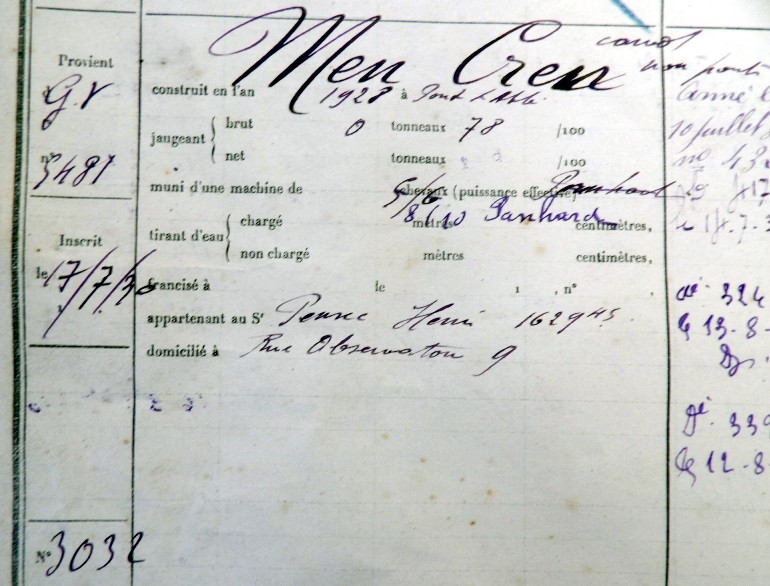 Provient
G.V
n°
3481
Inscrit
le 17/7/30
N° 3032
Men Creu
canot
non ponté
construit en l'an 1928 à Pont l'Abbé
jaugeant { brut 0 tonneaux 78 /100
net tonneaux /100
muni d'une machine de 5/6 chevaux (puissance effective) Panhard
8/10 Panhard
tirant d'eau { chargé mètres centimètres,
non chargé mètres centimètres,
francisé à le 1 , n° ,
appartenant au Sr Henri 16294
domicilié à Rue Observatoire 9
Armé l
10 juillet
n° 43
417
le 17-7-3
324
le 13-8-
339
le 12-8-